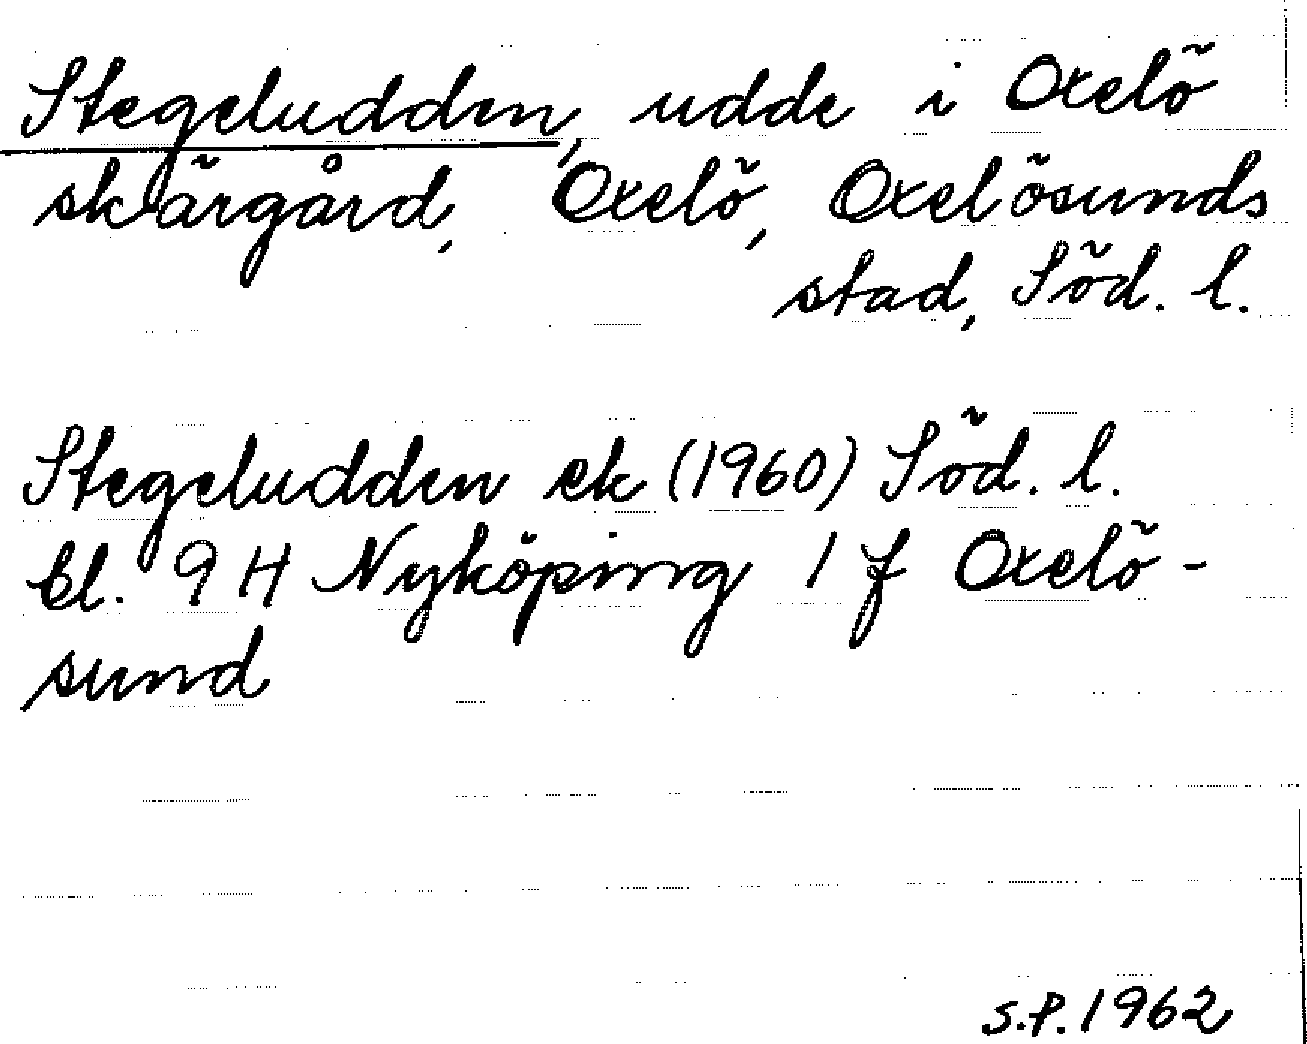 Stegeludden, udde i Oxelö
skärgård, Oxelö, Oxelösunds
stad, Söd. l.
Stegeludden ek (1960) Söd. l.
bl. 9 H Nyköping 1 f Oxelö-
sund
S.P. 1962